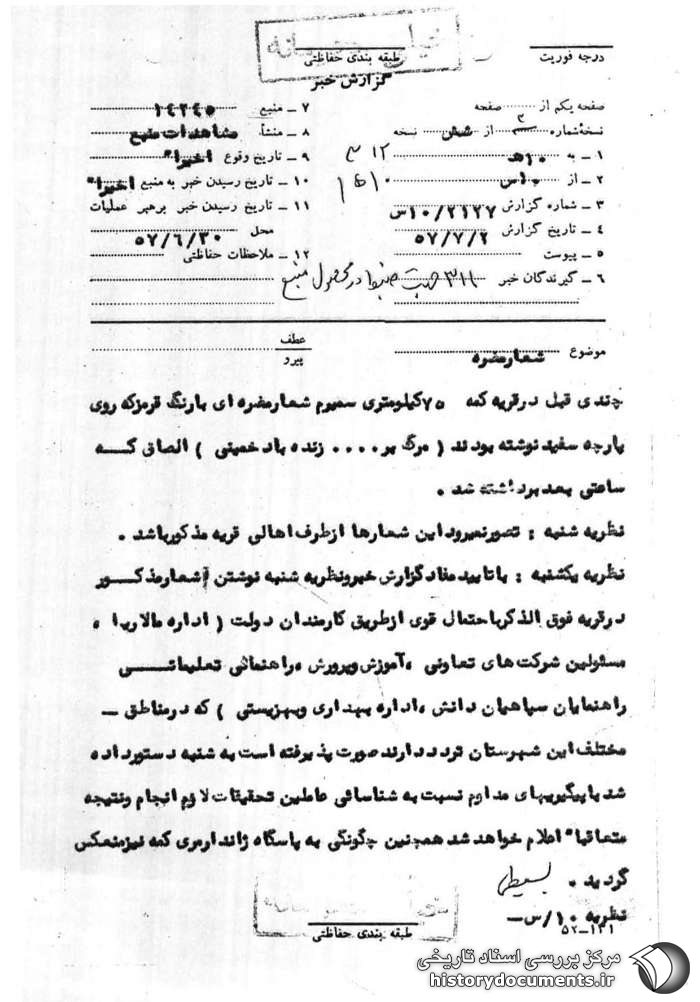 خیلی محرمانه
طبقه بندی حفاظتی
درجه فوریت
گزارش خبر
صفحه یکم از صفحه
نسخه شماره ۳ از شش نسخه
۱ ــ به ۱۰هـ ۳۱۲
۲ ــ از ۱۰س
۳ ــ شماره گزارش ۱۰/۲۱۲۷س
۴ ــ تاریخ گزارش ۵۷/۷/۲
۵ ــ پیوست
۶ ــ گیرندگان خبر ۳۱۱ جهت ضبط در محصول منبع
۷ ــ منبع ۱۴۲۴۵
۸ ــ منشأ مشاهدات منبع
۹ ــ تاریخ وقوع اخیرا"
۱۰ ــ تاریخ رسیدن خبر به منبع اخیرا"
۱۱ ــ تاریخ رسیدن خبر برهبر عملیات
محل ۵۷/۶/۳۰
۱۲ ــ ملاحظات حفاظتی
موضوع شعارمضره
عطف
پیرو
چندی قبل درقریه کمه ۷۵کیلومتری سمیرم شعارمضره ای بارنگ قرمزکه روی
پارچه سفیدنوشته بودند ( مرگ بر.... زنده بادخمینی ) الصاق کـــه
ساعتی بعدبرداشته شد .
نظریه شنبه : تصورنمیروداین شعارها ازطرف اهالی قریه مذکورباشد .
نظریه یکشنبه : باتاییدمفادگزارش خبرونظریه شنبه نوشتن اشعارمذکـــور
درقریه فوق الذکرباحتمال قوی ازطریق کارمندان دولت ( اداره مالاریا ،
مسئولین شرکت های تعاونی ،آموزش وپرورش ،راهنمائی تعلیماتـــی
راهنمایان سپاهیان دانش ،اداره بهداری وبهزیستی ) که درمناطق ــ
مختلف این شهرستان ترددد دارندصورت پذیرفته است به شنبه دستورداده
شد باپیگیریهای مداوم نسبت به شناسائی عاملین تحقیقات لازم انجام ونتیجه
متعاقبا" اعلام خواهدشد همچنین چگونگی به پاسگاه ژاندارمری کمه نیزمنعکس
گردید .
نظریه ۱۰/س ــ
طبقه بندی حفاظتی
۵۲-۱۳۱
مرکز بررسی اسناد تاریخی
historydocuments.ir